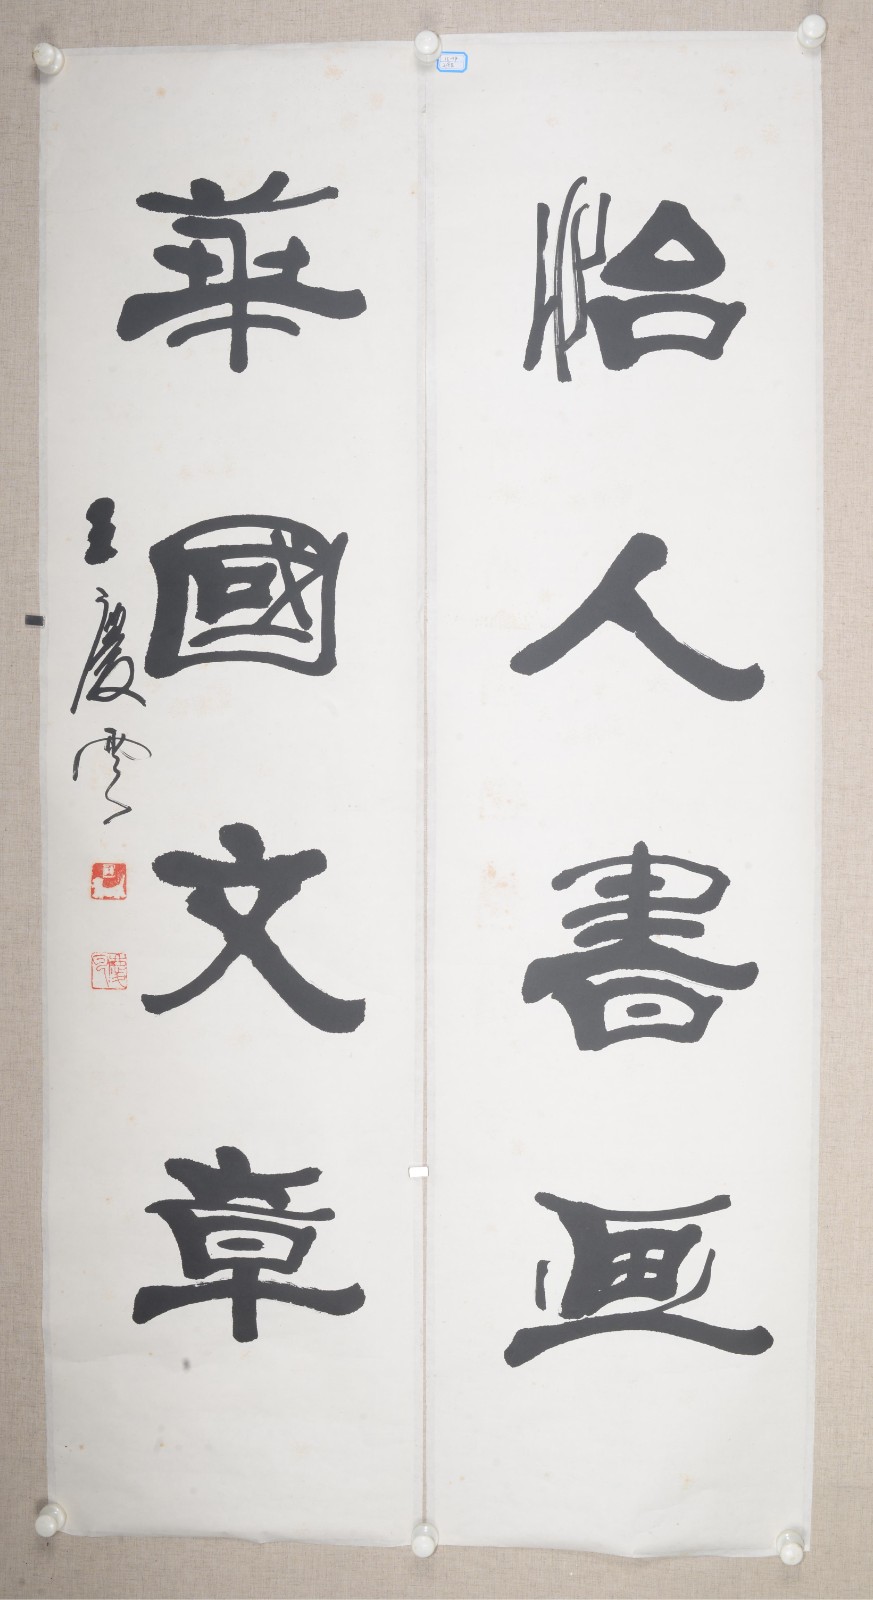 怡人書画
華國文章
王慶雲